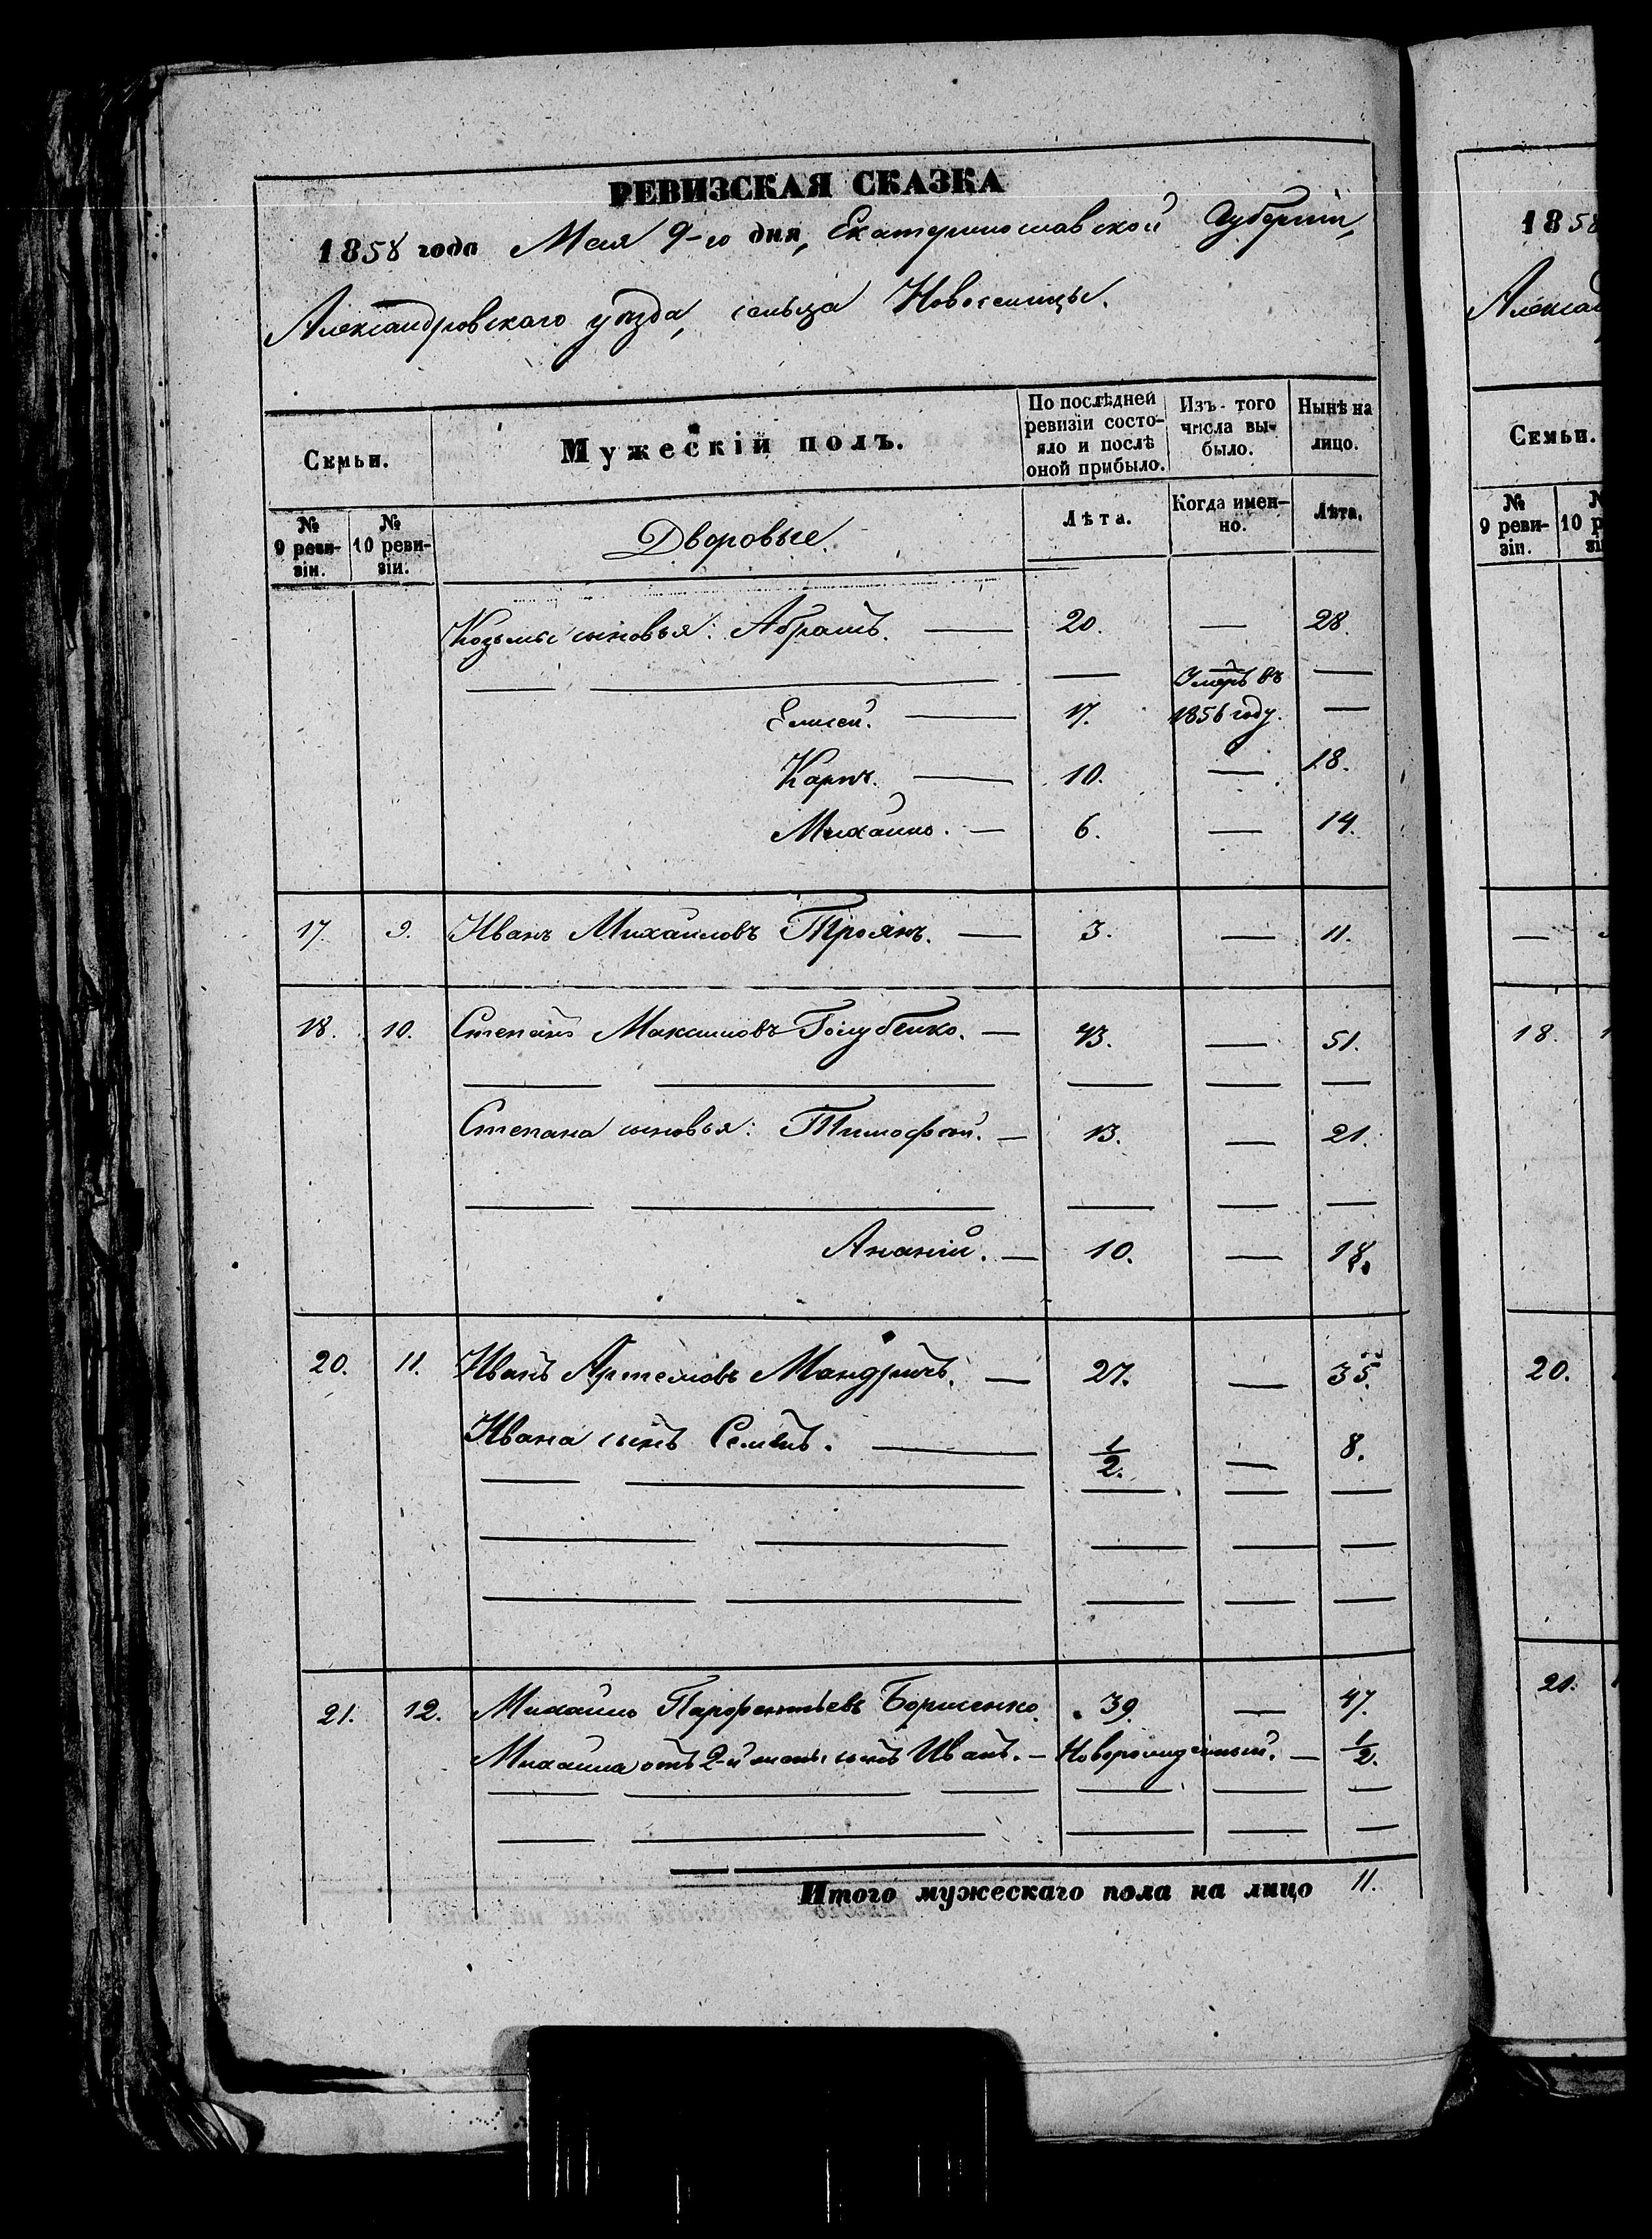 РЕВИЗСКАЯ СКАЗКА
1858 года Мая 9-го дня, Екатеринославской Губерніи,
Александровскаго уѣзда, сельца Новоселицы.
Семьи. Мужескій полъ. По послѣдней ревизіи состояло и послѣ оной прибыло. Изъ того числа выбыло. Нынѣ на лицо.
№ 9 ревизіи. № 10 ревизіи. Дворовые. Лѣта. Когда именно. Лѣта.
Козьмы сыновья: Абрамъ. — 20. — 28.
Елисей. — 17. Умеръ въ 1856 году. —
Карпъ. — 10. — 18.
Михайло. — 6. — 14.
17. 9. Иванъ Михайловъ Троянъ. — 3. — 11.
18. 10. Степанъ Максимовъ Голубенко. — 43. — 51.
Степана сыновья: Тимофей. — 13. — 21.
Ананій. — 10. — 18.
20. 11. Иванъ Артемовъ Мандричъ. — 27. — 35.
Ивана сынъ Семенъ. — 1/2. — 8.
21. 12. Михайло Парфентьевъ Борисенко. 39. — 47.
Михаила отъ 2-й жены сынъ Иванъ. — Новорожденный. — 1/2.
Итого мужескаго пола на лицо 11.
1858
Семьи.
№ 9 ревизіи.
18.
20.
21.